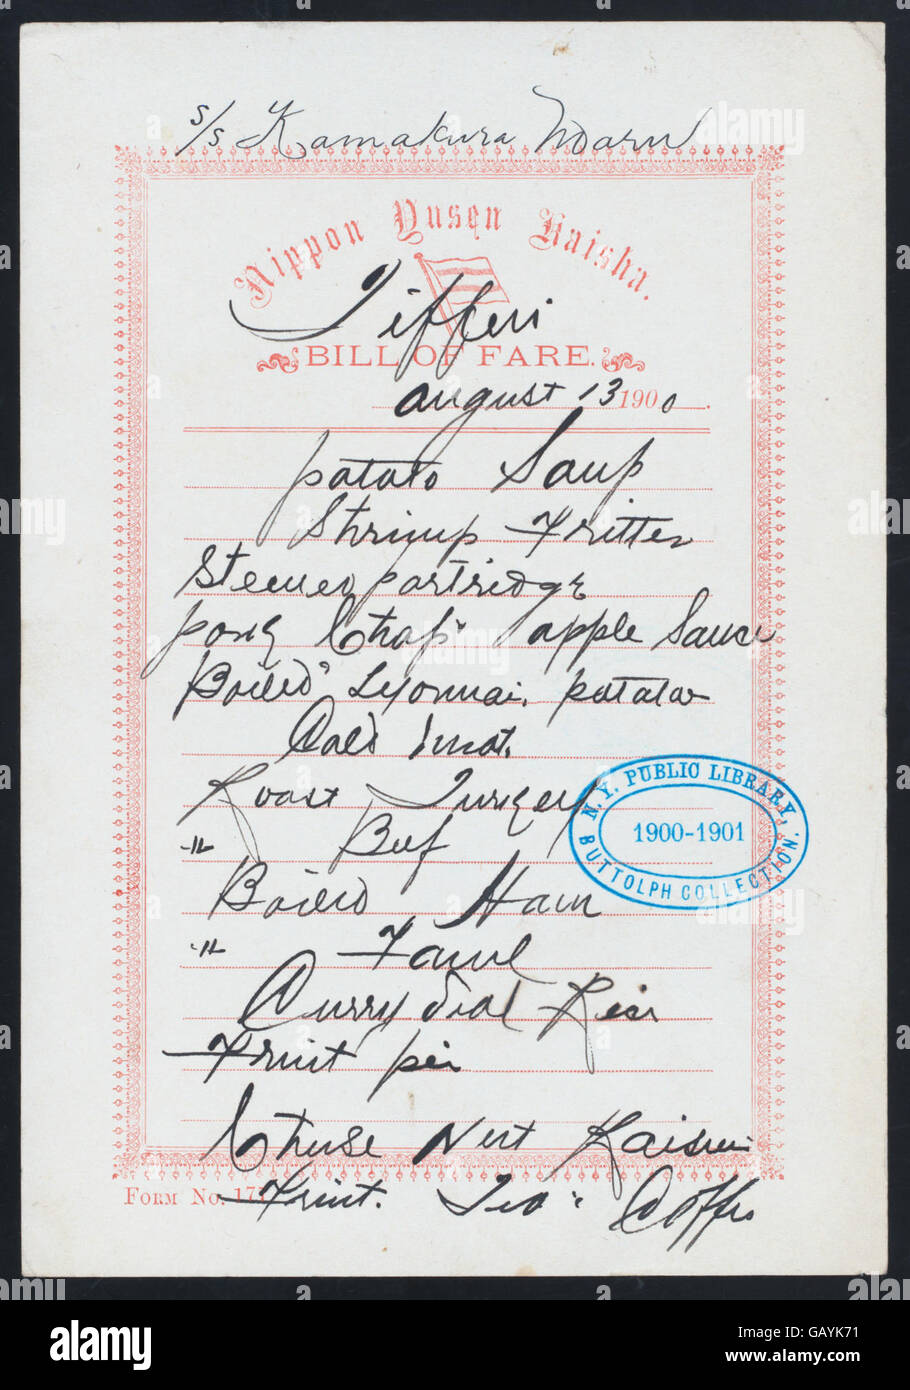 s/s Kamakura Maru
Nippon Yusen Kaisha.
Tiffin
BILL OF FARE.
august 13 1900.
potato Soup
Shrimp Fritter
Stewed partridge
pork Chop apple Sauce
Boiled Lyonnai. potatoe
Cold meat.
Roast Turkey
" Beef
Boiled Ham
" Fowl
Curry Veal Rice
Fruit pie
Cheese Nut Raisin
FORM NO. 17 Fruit. Tea Coffe
N. Y. PUBLIC LIBRARY,
1900-1901
BUTTOLPH COLLECTION.
alamy
Image ID: GAYK71
www.alamy.com